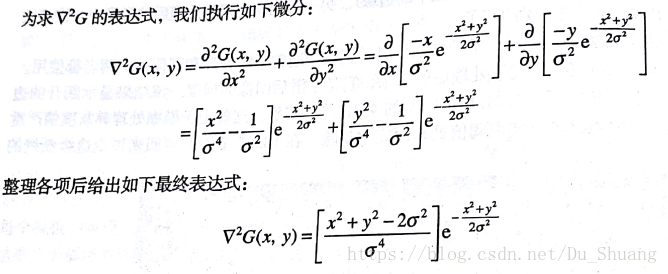 为求∇²G的表达式，我们执行如下微分：
∇²G(x, y) = ∂²G(x, y)/∂x² + ∂²G(x, y)/∂y² = ∂/∂x [ -x/σ² e^(-(x²+y²)/2σ²) ] + ∂/∂y [ -y/σ² e^(-(x²+y²)/2σ²) ]
= [ x²/σ⁴ - 1/σ² ] e^(-(x²+y²)/2σ²) + [ y²/σ⁴ - 1/σ² ] e^(-(x²+y²)/2σ²)
整理各项后给出如下最终表达式：
∇²G(x, y) = [ (x² + y² - 2σ²)/σ⁴ ] e^(-(x²+y²)/2σ²)
https://blog.csdn.net/Du_Shuang